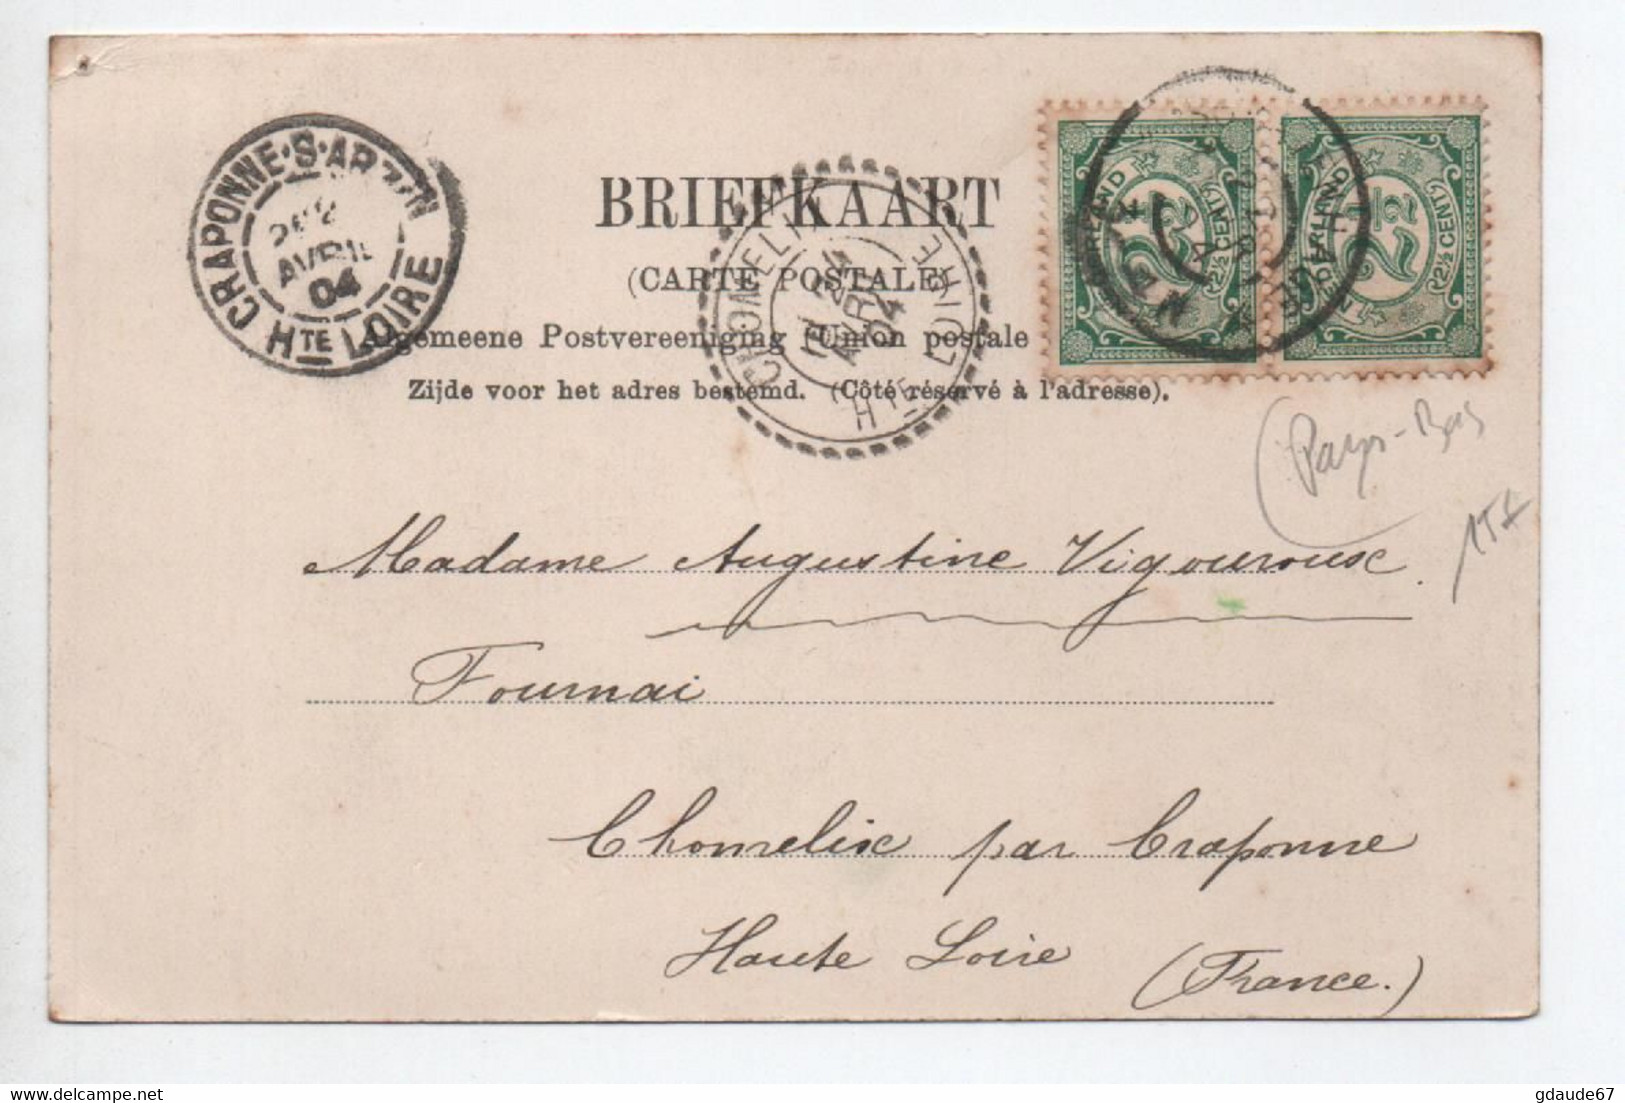 CRAPONNE·S·ARZON
AVRIL
04
HTE LOIRE
BRIEFKAART
(CARTE POSTALE)
Algemeene Postvereeniging (Union postale
Zijde voor het adres bestemd. (Côté réservé à l'adresse).
CHOMELIX
24
AVRIL
04
HTE LOIRE
NEDERLAND
2½
(2½ CENT)
NEDERLAND
2½
(2½ CENT)
HAAG
Pays-Bas
Madame Augustine Vigouroux
Fournai
Chomelix par Craponne
Haute Loire (France.)
gdaude67